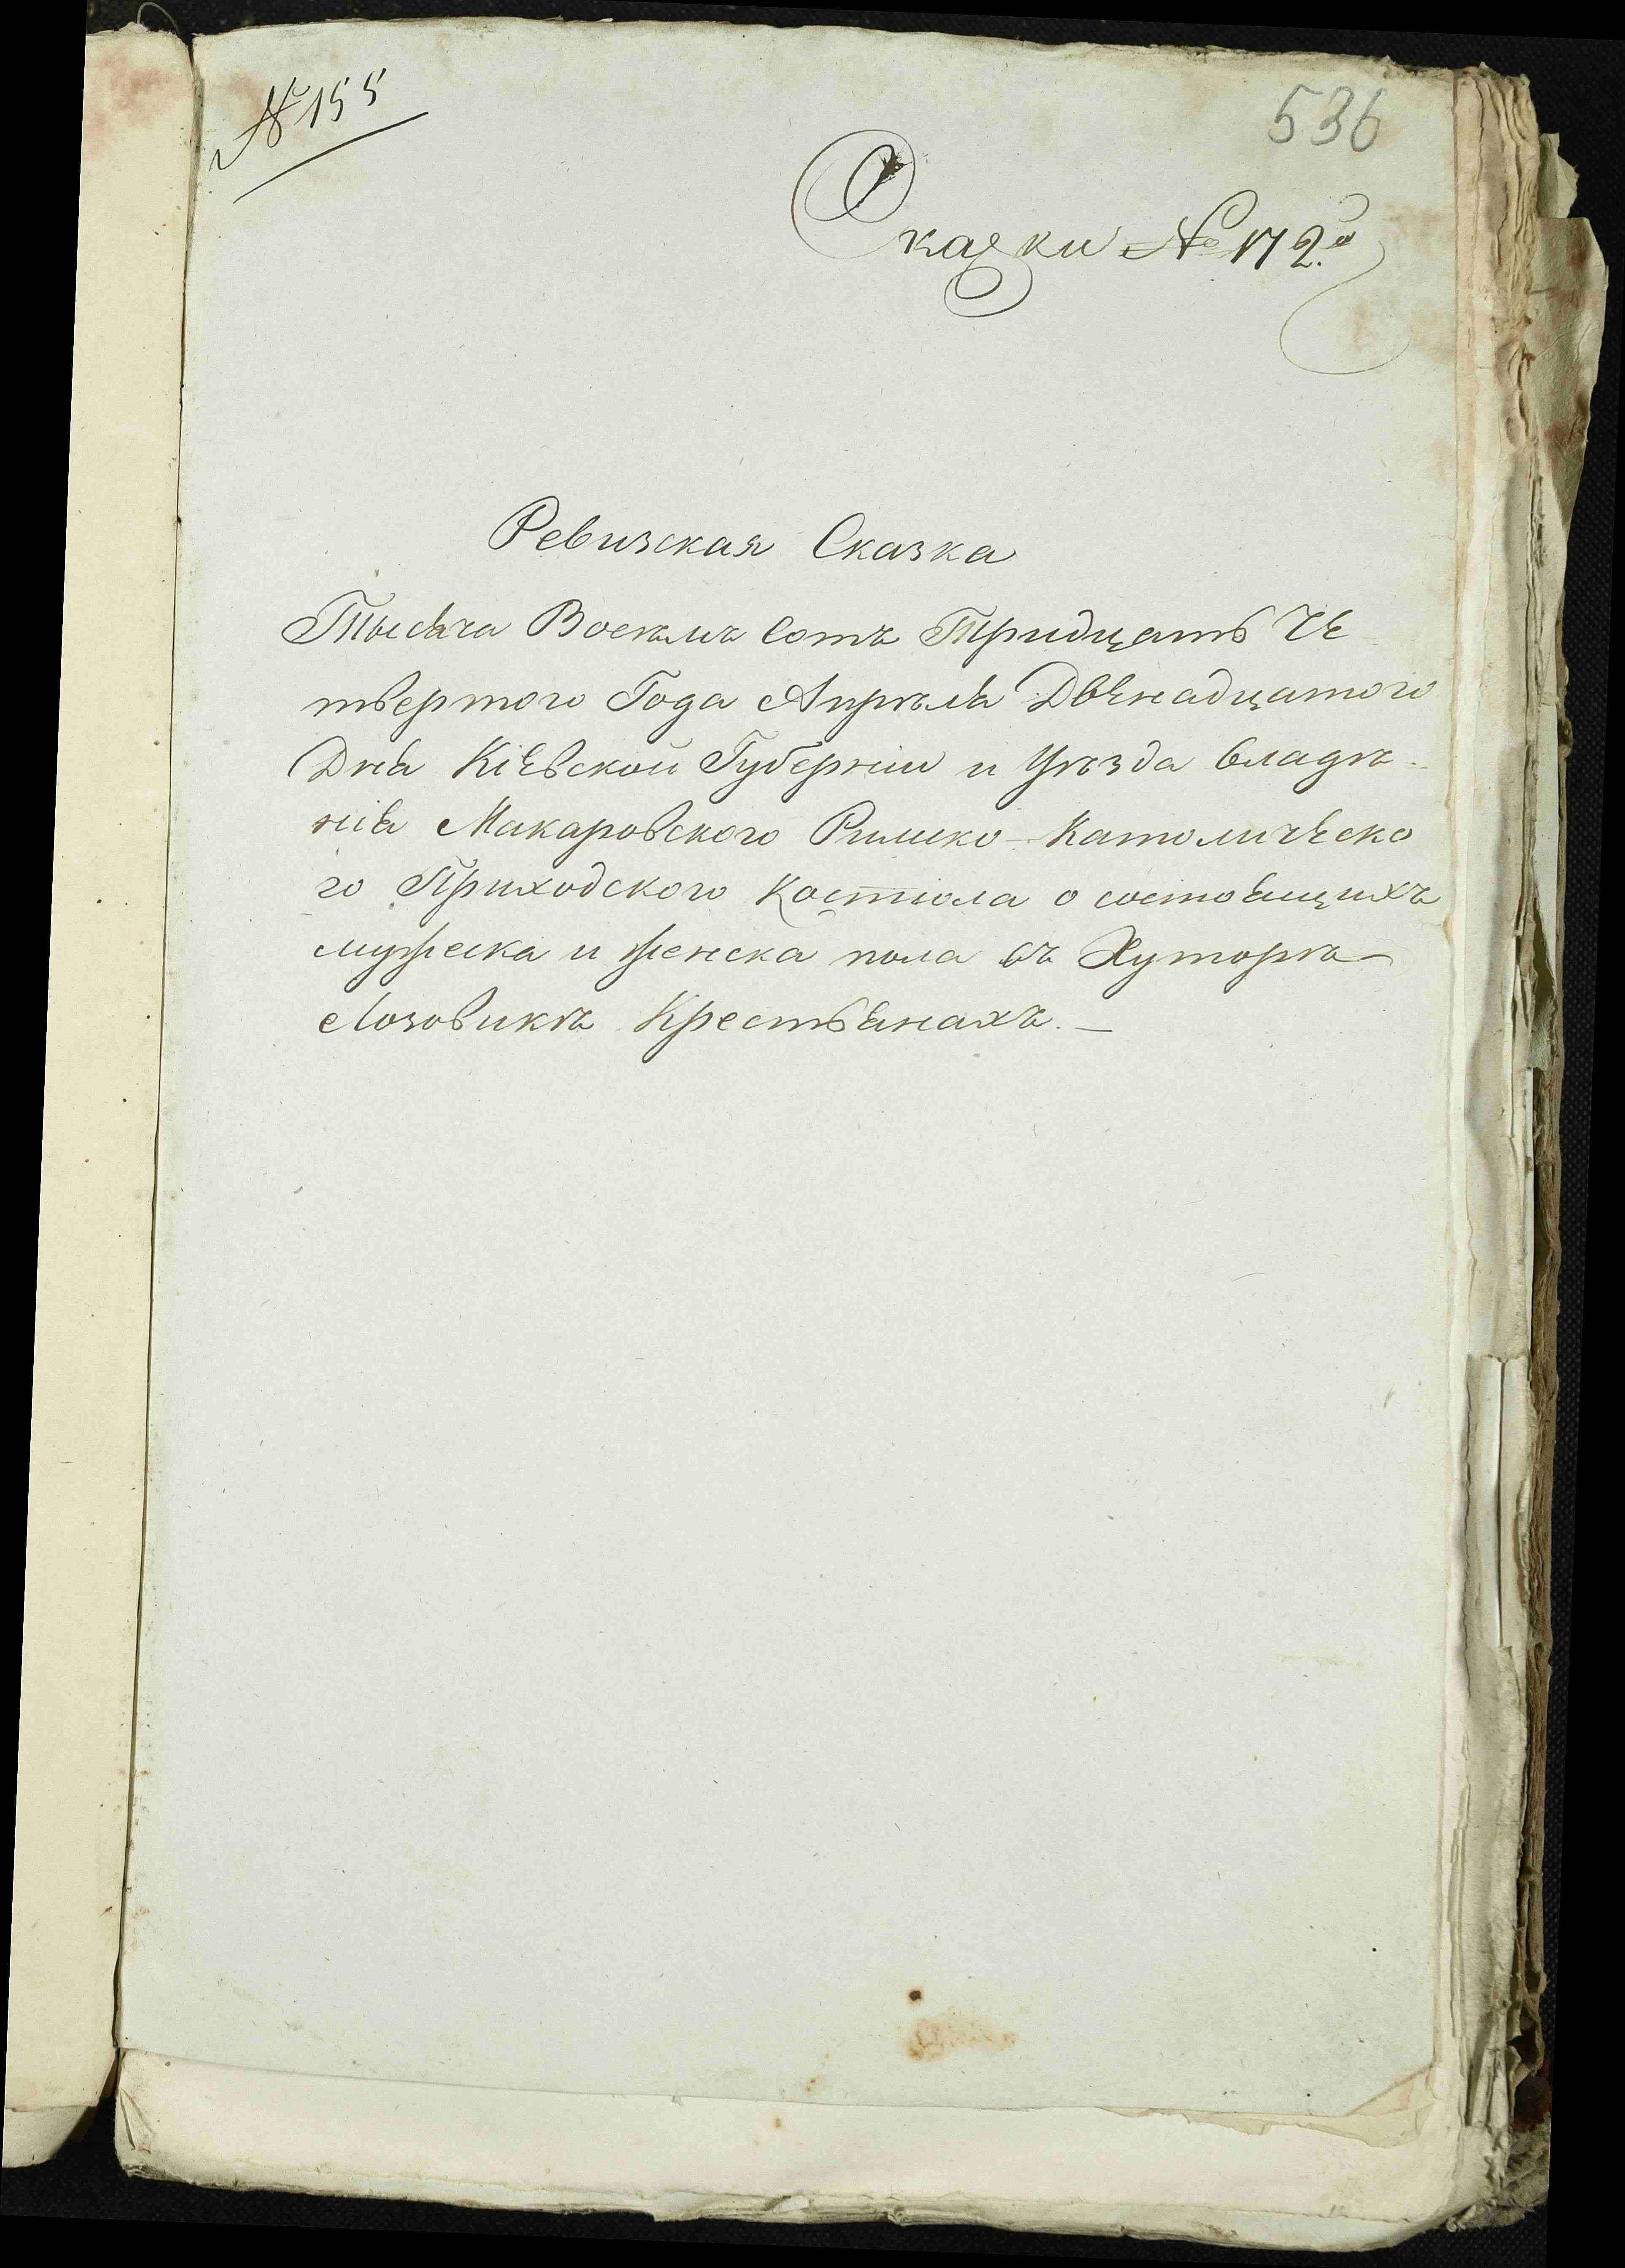 № 155
536
Сказки № 172й
Ревизская Сказка
Тысяча Восемъ Сотъ Тридцать Че
твертого Года Апрѣля Двенадцатого
Дня Кіевской Губерніи и Уѣзда владѣ-
нія Макаровского Римско-Католическо
го Приходского Костіола о состоящихъ
мужеска и женска пола въ Хуторѣ
Лозовикѣ Крестьянахъ.—